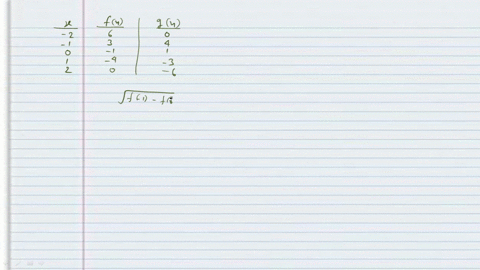 x f(x) g(x)
-2 6 0
-1 3 4
0 -1 1
1 -9 -3
2 0 -6
√f(1) - f(